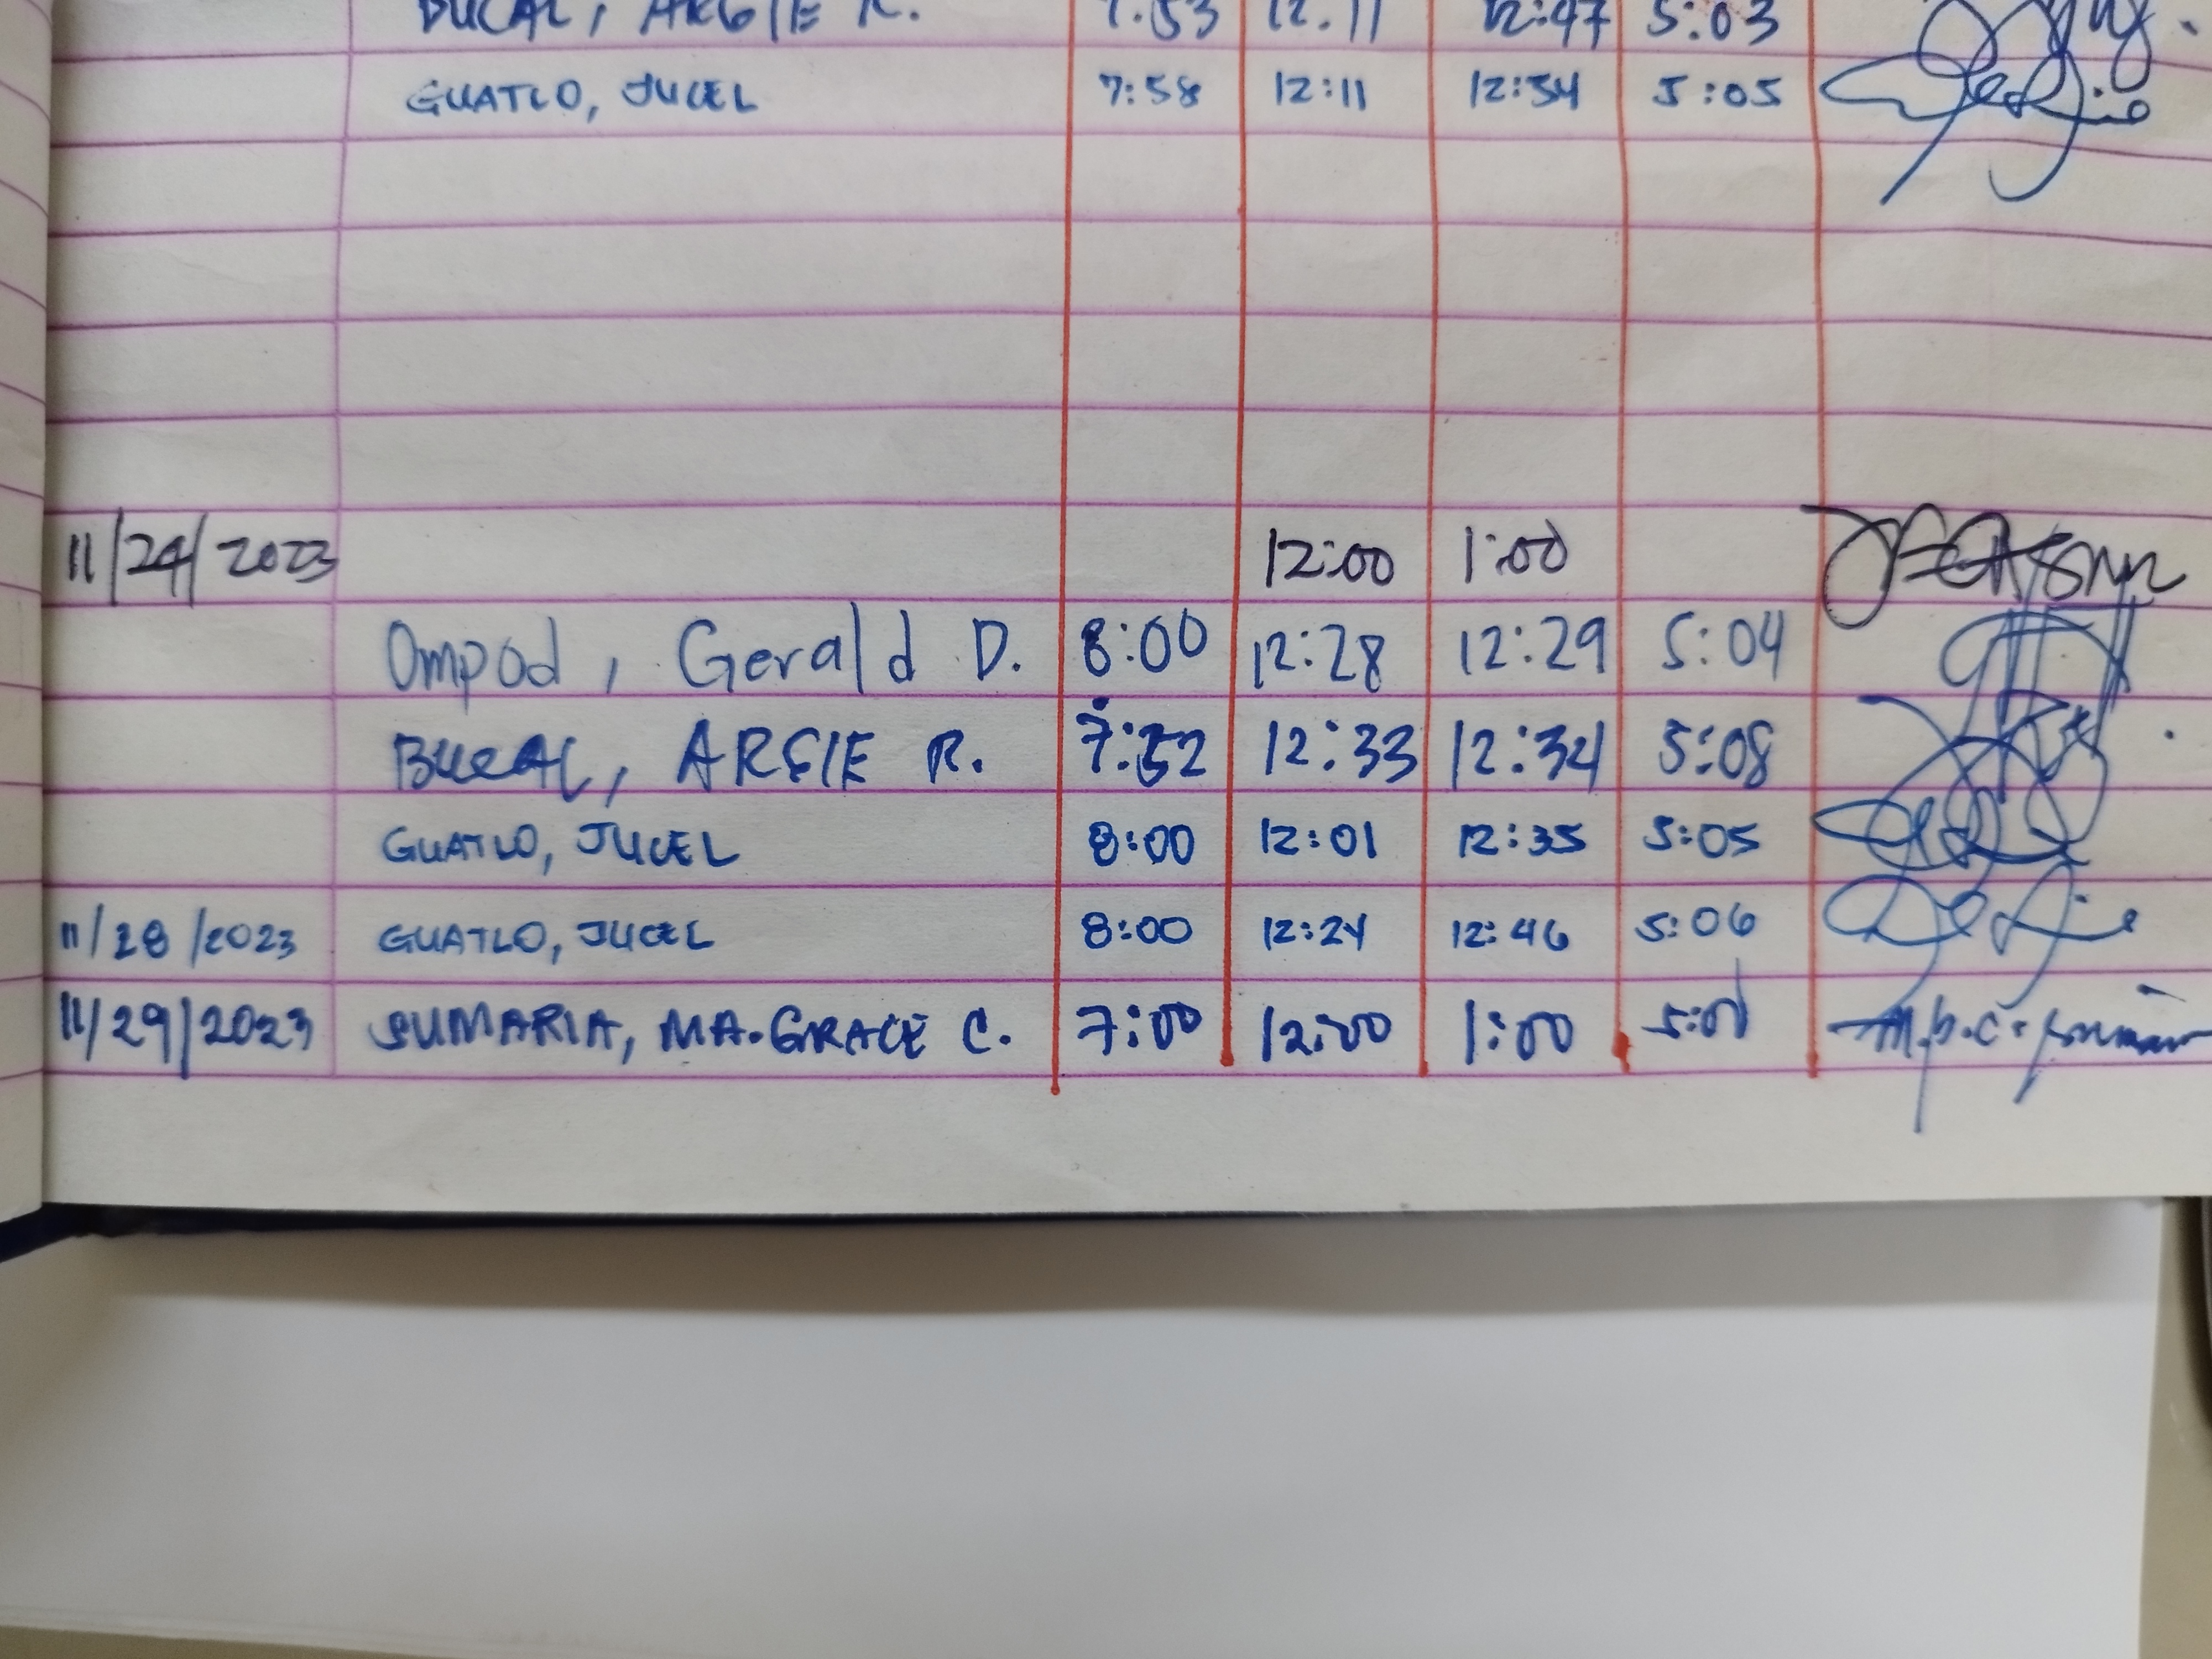 BUCAL, ARGIE R. 7:53 12:11 12:47 5:03
GUATLO, JUCEL 7:58 12:11 12:54 5:05
11/24/2023 12:00 1:00
Ompod, Gerald D. 8:00 12:28 12:29 5:04
BUCAL, ARGIE R. 7:52 12:33 12:34 5:08
GUATLO, JUCEL 8:00 12:01 12:35 5:05
11/28/2023 GUATLO, JUCEL 8:00 12:24 12:46 5:06
11/29/2023 SUMARIA, MA. GRACE C. 7:00 12:00 1:00